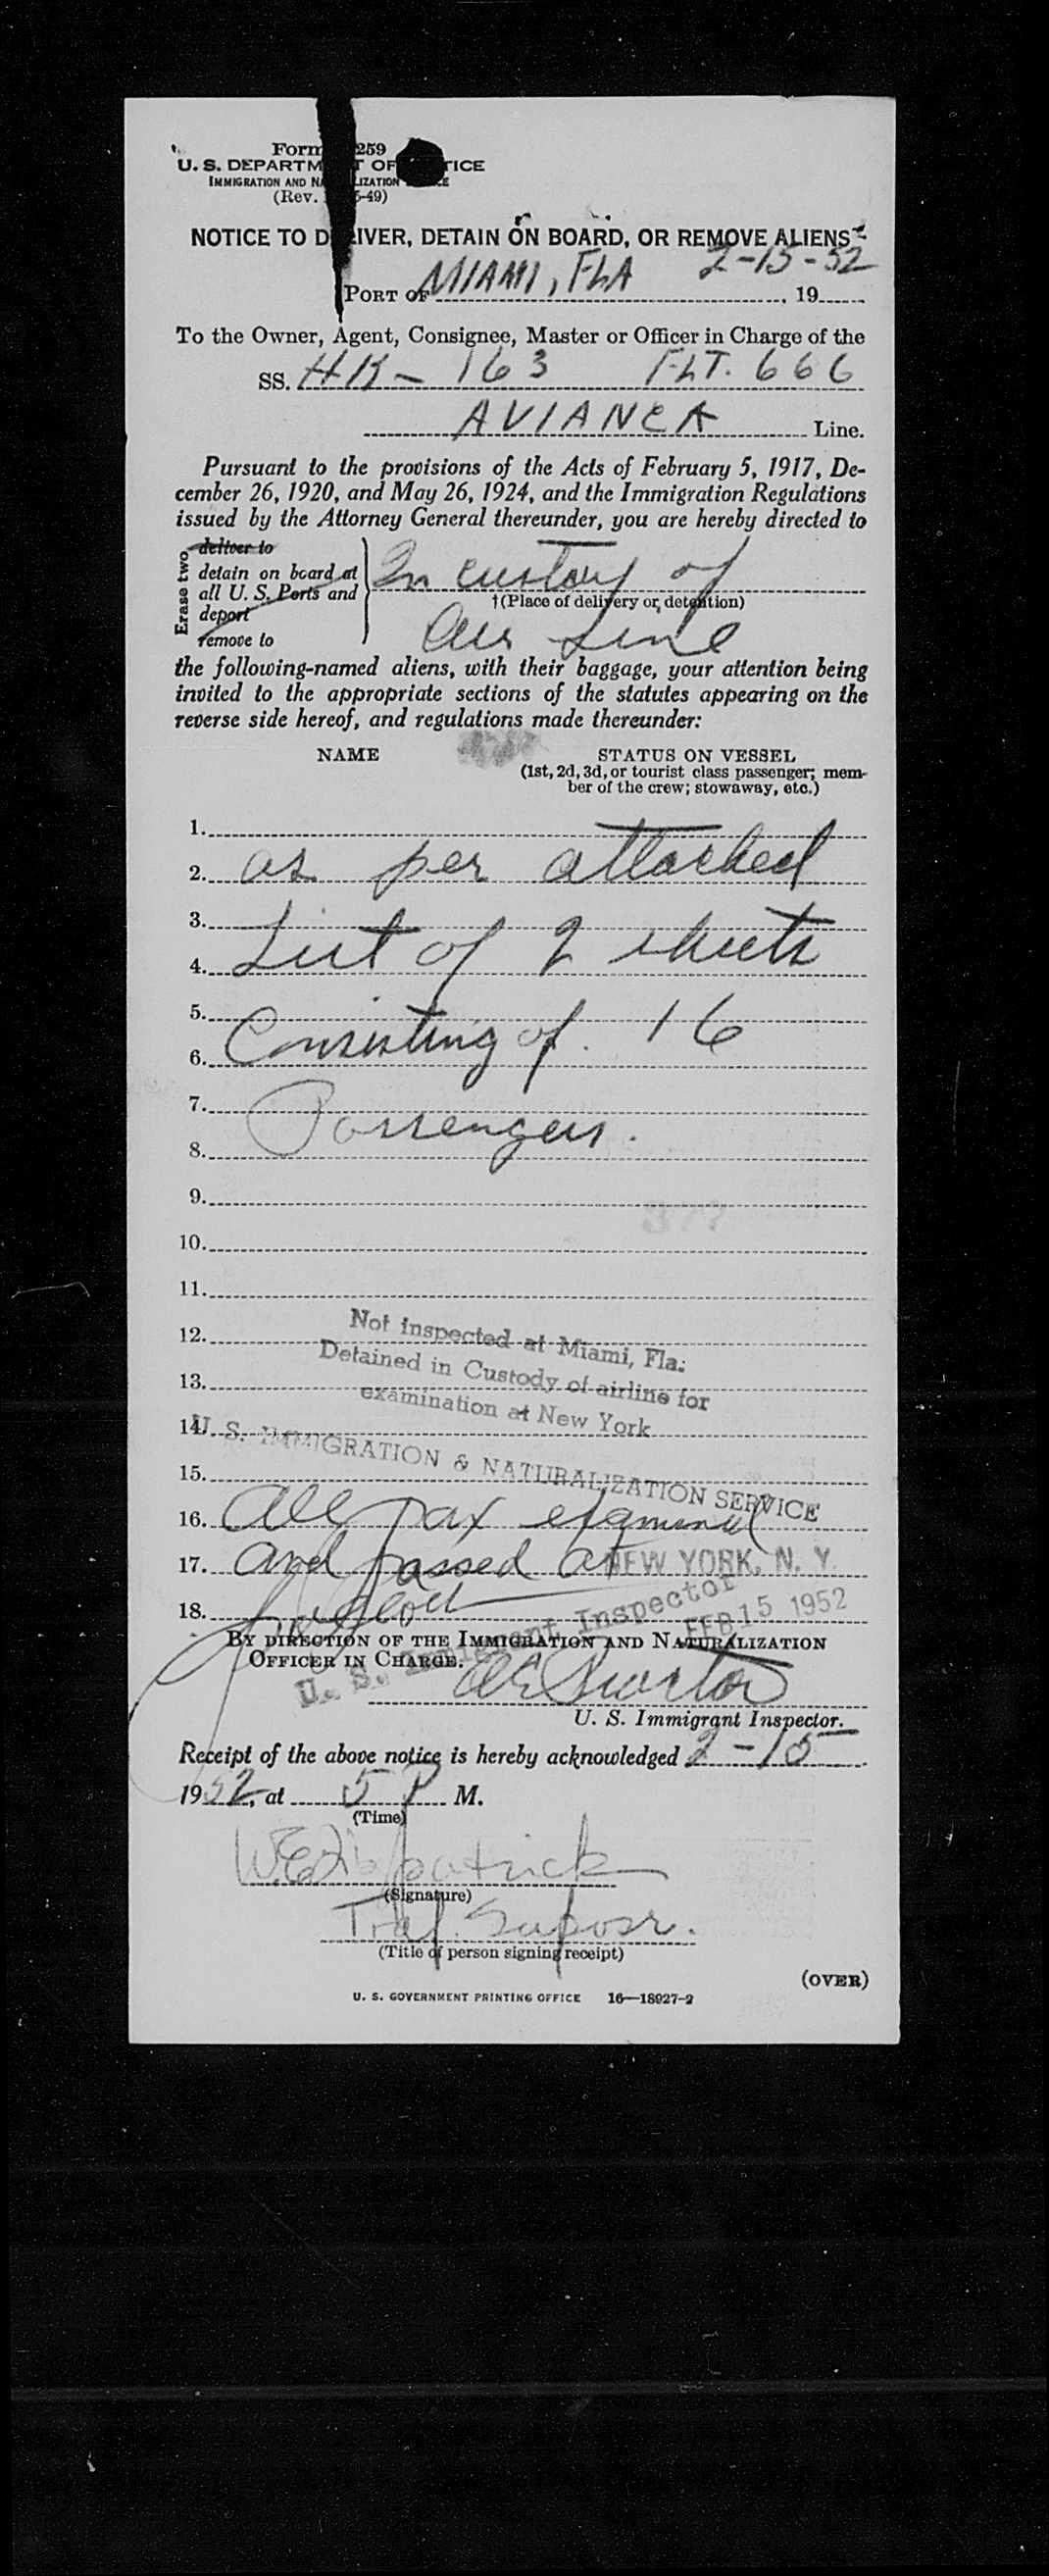 Form 259
U. S. DEPARTM T OF TICE
IMMIGRATION AND NA LIZATION CE
(Rev. 5-49)
NOTICE TO D IVER, DETAIN ON BOARD, OR REMOVE ALIENS
2-15-52
PORT OF MIAMI, FLA , 19
To the Owner, Agent, Consignee, Master or Officer in Charge of the
SS. HK-163 FLT. 666
AVIANCA Line.
Pursuant to the provisions of the Acts of February 5, 1917, De-
cember 26, 1920, and May 26, 1924, and the Immigration Regulations
issued by the Attorney General thereunder, you are hereby directed to
Erase two
deliver to
detain on board at
all U. S. Ports and
deport
remove to
In custody of
†(Place of delivery or detention)
Air Line
the following-named aliens, with their baggage, your attention being
invited to the appropriate sections of the statutes appearing on the
reverse side hereof, and regulations made thereunder:
NAME STATUS ON VESSEL
(1st, 2d, 3d, or tourist class passenger; mem-
ber of the crew; stowaway, etc.)
1.
2. as per attached
3.
4. List of 2 sheets
5.
6. Consisting of 16
7.
8. Passengers.
9.
10.
11.
12. Not inspected at Miami, Fla.
13. Detained in Custody of airline for
examination at New York
14. U. S. IMMIGRATION & NATURALIZATION SERVICE
15.
16. All pax examined
17. and passed at NEW YORK, N. Y.
18. FEB 15 1952
U. S. Immigrant Inspector
BY DIRECTION OF THE IMMIGRATION AND NATURALIZATION
OFFICER IN CHARGE.
U. S. Immigrant Inspector.
Receipt of the above notice is hereby acknowledged 2-15
1952, at 5 P M.
(Time)
(Signature)
Traf. Supvsr.
(Title of person signing receipt)
(OVER)
U. S. GOVERNMENT PRINTING OFFICE 16—18927-2